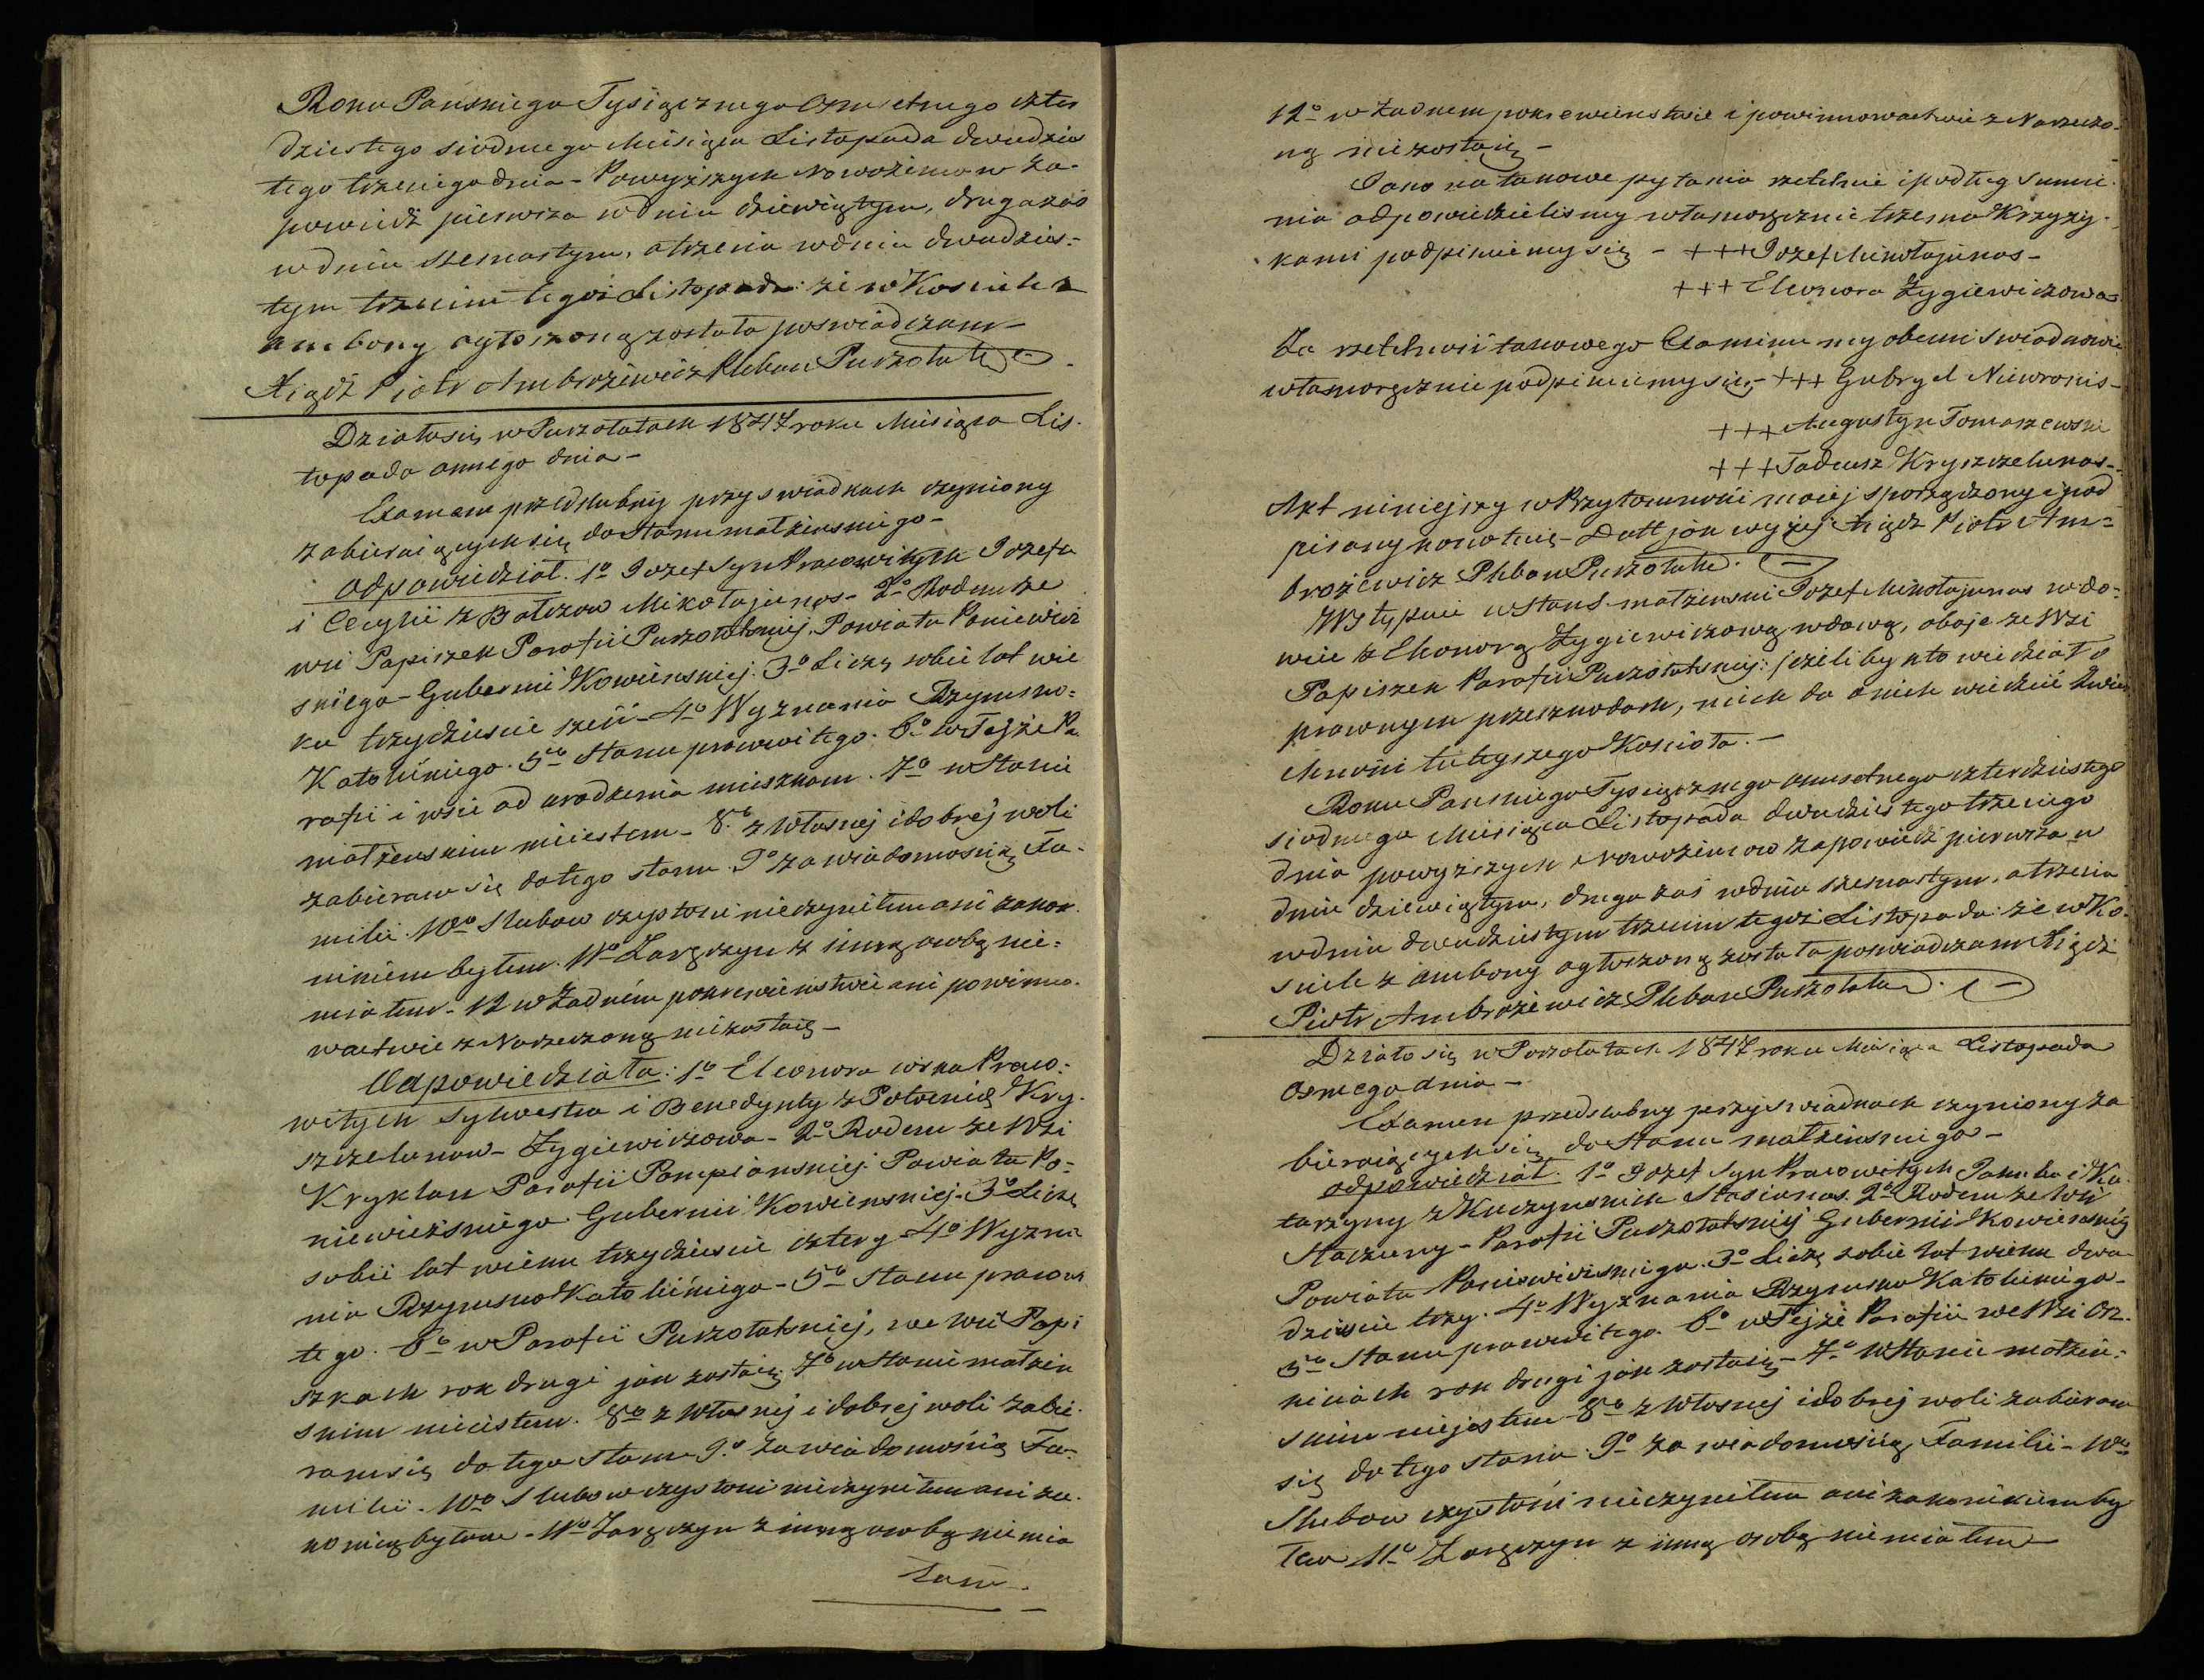 Roku Panskiego Tysiącznego Osmsetnego czter
dziestego siodmego Miesiąca Listopada dwudzies
tego trzeciego dnia - Powyższych Nowożencow Za-
powiedź pierwsza w dniu dziewiątym, druga zaś
w dniu szesnastym, a trzecia w dniu dwudzies-
tym trzecim tegoż Listopada: że w Kosciele z
ambony ogłoszoną została poswiadczam -
Xiądz Piotr Ambrożewicz Pleban Puszołatski
Działo się w Puszołatach 1847 roku Miesiąca Lis-
topada osmego dnia -
Examen przedslubny przy swiadkach czyniony
zabieraiących się do Stanu małżenskiego -
Odpowiedział. 1º Jozef syn Prawowitych Jozefa
i Cecylii z Bałczow Mikołajunas - 2º Rodem ze
wsi Papiszek Parafii Puszołatskiej, Powiatu Poniewież
skiego - Gubernii Kowienskiej. 3º Liczę sobie lat wie
ku trzydziescie szesć - 4º Wyznania Rzymsko-
Katolickiego. 5º Stanu prawowitego. 6º w Tejże Pa
rafii i wsie od urodzenia mieszkam. 7º w Stanie
małżenskim nieiestem - 8º z Własnej i dobrej woli
zabieram się do tego stanu. 9º za wiadomoscią Fa-
milii. 10º Slubow czystosci nieczyniłem ani zakon
nikiem byłem. 11º Zaręczyn z inną osobą nie-
miałem - 12 w Żadnem pokrewienstwie ani powinno-
wactwie z Narzeczoną niezostaię -
Odpowiedziała: 1º Eleonora corka Prawo-
witych Sylwestra i Benedykty z Potocnią Kry-
szczelunow - Zygiewiczowa - 2º Rodem ze Wsi
Kryklan Parafii Pompianskiej Powiatu Po-
niewieżskiego Gubernii Kowienskiej. 3º Liczę
sobie lat wieku trzydziescie cztery - 4º Wyzna
nia Rzymsko Katolickiego - 5º Stanu prawowi
tego. 6º w Parafii Puszołatskiej, we wsi Papi
szkach rok drugi jak zostaię. 7º w Stanie małżen
skim nieiestem. 8º z Własnej i dobrej woli zabie-
ram się do tego Stanu 9º Za wiadomością Fa-
milii - 10º Slubow czystosci nieczyniłam ani za-
konnicą byłam - 11º Zaręczyn z inną osobą niemia
łam -
12º w Żadnem pokrewienstwie i powinnowactwie z Narzeczo-
ną niezostaię -
Jako na takowe pytania rzetelnie i podług Sumie-
nia odpowiedzielismy własnoręcznie trzema Krzyży-
kami podpisuiemy się - +++ Jozef Mikołajunas -
+++ Eleonora Zygiewiczowa
Za rzetelnosć takowego Examinu my obecni swiadkowie
własnoręcznie podpisuiemy się - +++ Gabryel Niewronis -
+++ Augustyn Tomaszewski
+++ Tadeusz Kryszczelunas -
Akt niniejszy w Przytomnosci moiej sporządzony i pod
pisany konotuię - Datt jak wyżej Xiądz Piotr Am-
brożewicz Pleban Puszołatski.
Wstępuie w Stan małżenski Jozef Mikołajunas wdo-
wiec z Eleonorą Zygiewiczową wdową, oboje ze Wsi
Papiszek Parafii Puszołatskiej: jeżeliby kto wiedział o
prawnych przeszkodach, niech da o nich wiedzieć Zwierz
chnosci tutejszego Koscioła. -
Roku Panskiego Tysiącznego osmsetnego czterdziestego
siodmego Miesiąca Listopada dwudziestego trzeciego
dnia powyższych Nowożencow zapowiedź pierwsza w
dniu dziewiątym, druga zaś w dniu szesnastym, a trzecia
w dniu dwudziestym trzecim tegoż Listopada: że w Ko-
sciele z ambony ogłoszoną została poswiadczam Xiądz
Piotr Ambrożewicz Pleban Puszołatski.
Działo się w Puszołatach 1847 roku Miesiąca Listopada
Osmego dnia -
Examen przedslubny przy swiadkach czyniony za
bieraiących się do Stanu małżenskiego -
odpowiedział. 1º Jozef syn Prawowitych Jakuba i Ka-
tarzyny z Kuczynskich Stasianas. 2º Rodem ze Wsi
Staczuny - Parafii Puszołatskiej Gubernii Kowienskiej
Powiatu Poniewieżskiego. 3º Liczę sobie lat wieku dwa
dziescie trzy. 4º Wyznania Rzymsko Katolickiego -
5º Stanu prawowitego. 6º w Tejże Parafii we Wsi Oz-
kiciach rok drugi jak zostaię - 7º w Stanie małżen-
skim niejestem 8º z Własnej i dobrej woli zabieram
się do tego stanu 9º za wiadomoscią Familii - 10º
Slubow czystosci nieczyniłem ani zakonnikiem by
łem 11º Zaręczyn z inną osobą niemiałem